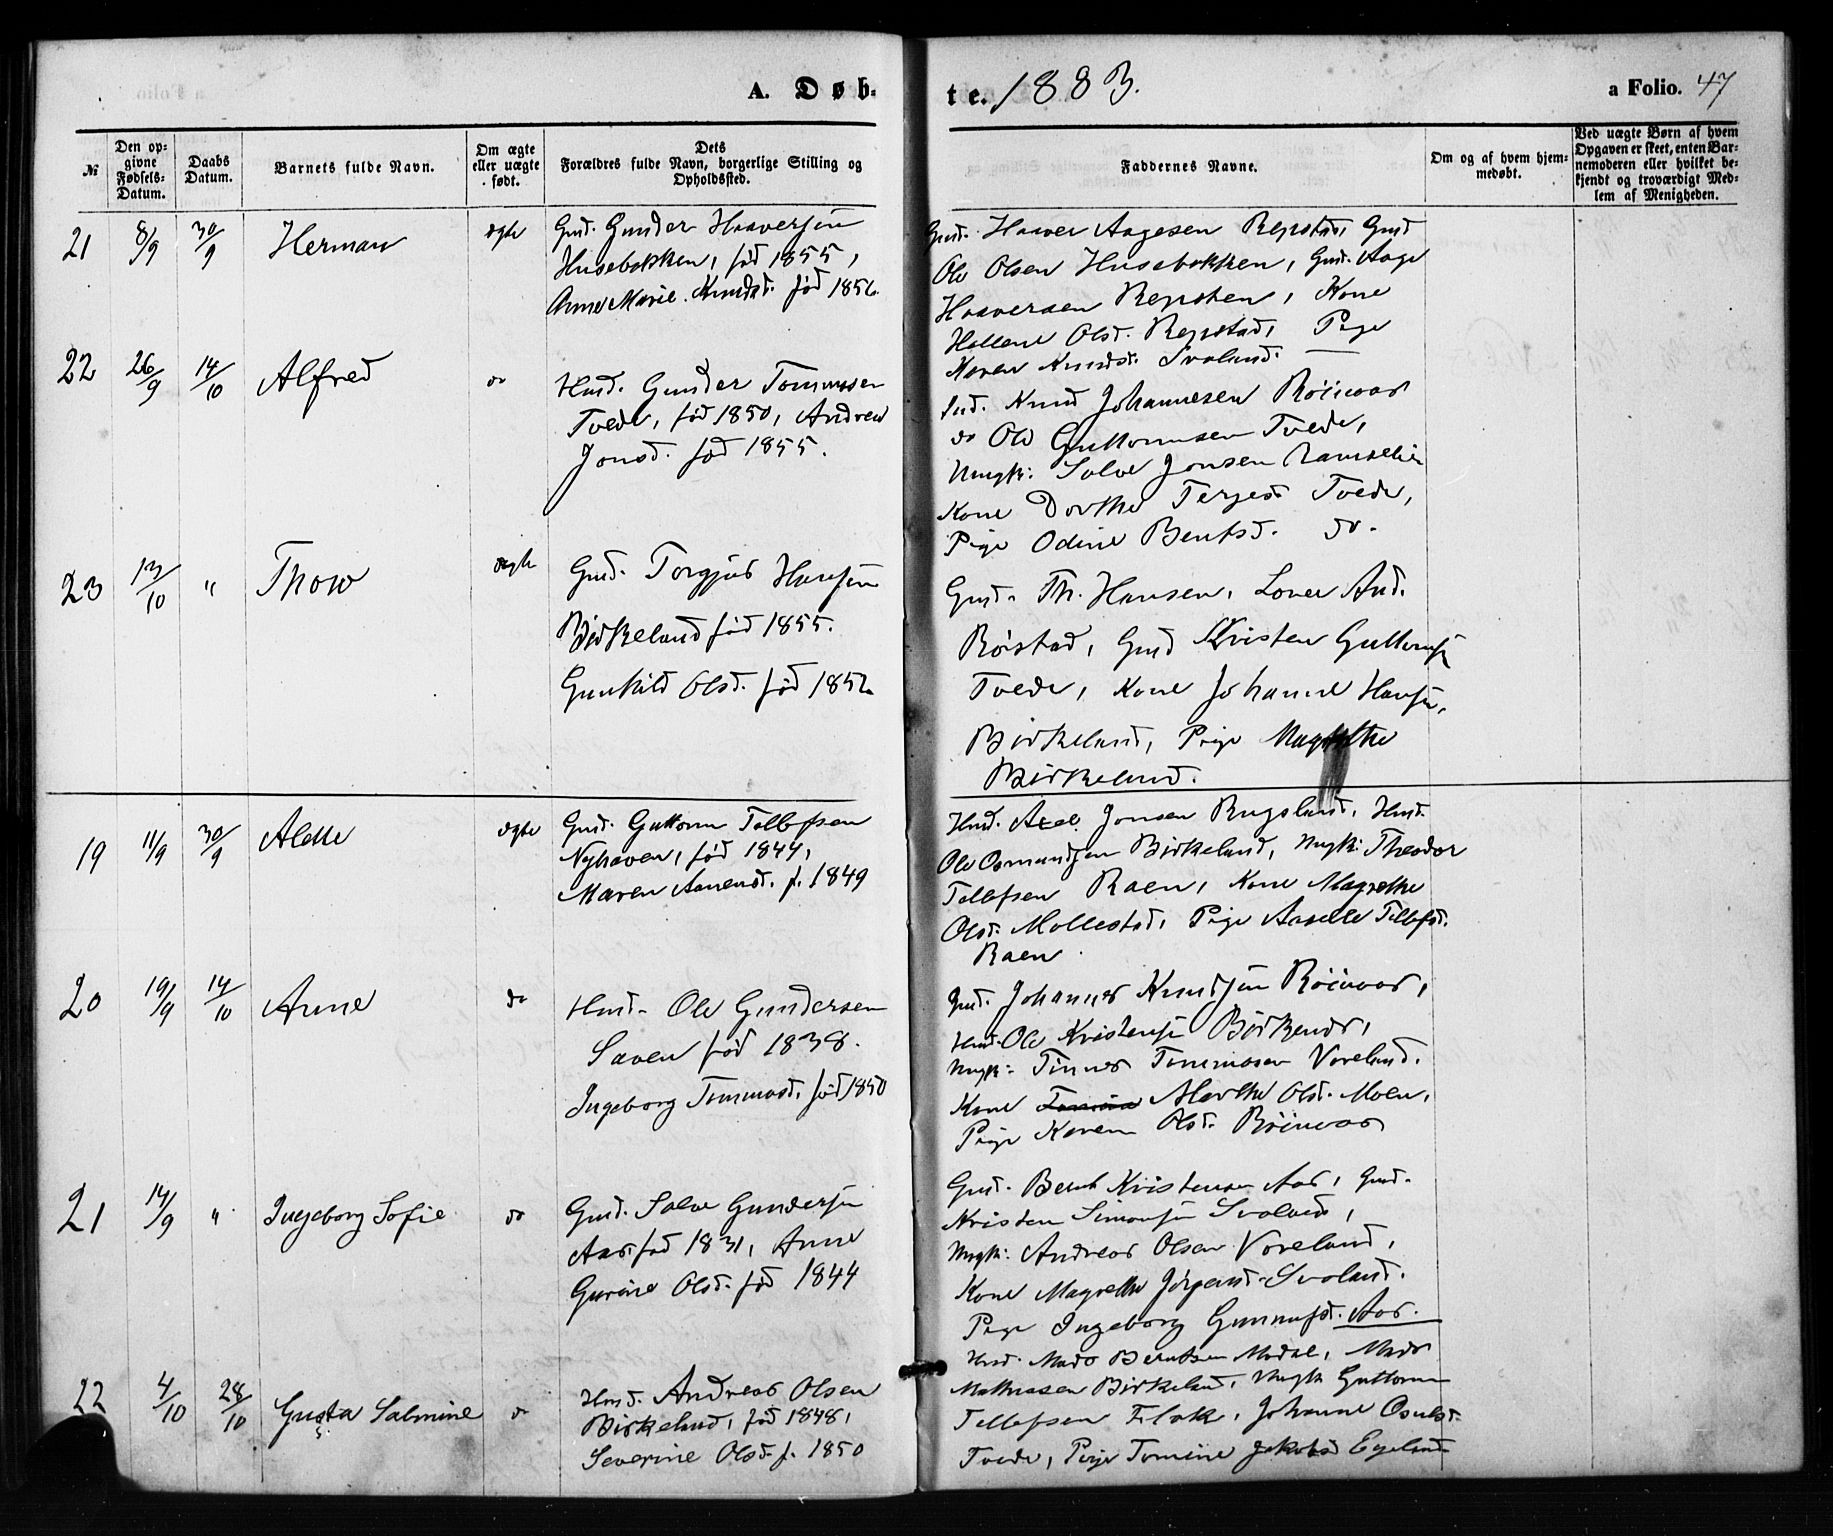 A. Døb-
te. 1883.
a Folio. 47
№
Den op-
givne
Fødsels-
Datum.
Daabs
Datum.
Barnets fulde Navn.
Om ægte
eller uægte
født.
Dets
Forældres fulde Navn, borgerlige Stilling og
Opholdssted.
Faddernes Navne.
Om og af hvem hjem-
medøbt.
Ved uægte Børn af hvem
Opgaven er skeet, enten Bar-
nemoderen eller hvilket be-
kjendt og troværdigt Med-
lem af Menigheden.
21 8/9 30/9 Herman ægte
Gmd. Gunder Haaversen
Husebakken, fød 1855,
Anne Marie Knudsd. fød 1856
Gmd. Haaver Aagesen Repstad, Gmd
Ole Olsen Husebakken, Gmd. Aage
Haaversen Repsten, Kone
Hellene Olsd. Repstad, Pige
Karen Knudsd. Svaland.
22 26/9 14/10 Alfred do
Hmd. Gunder Tommesen
Tvede, fød 1850, Andrea
Jonsd. fød 1855.
Ind. Knud Johannesen Röinaas
do Ole Guttormsen Tvede,
Ungk: Salve Jonsen
Kone Dorthe Terjesd. Tvede,
Pige Odine Bentsd. do.
23 13/10 " Thow ægte
Gmd. Torgjus Hansen
Birkeland fød 1855.
Gunhild Olsd. fød 1852
Gmd. Th. Hansen, And.
Røistad, Gmd Kristen Guttorms.
Tvede, Kone Johanne Hans.
Birkeland, Pige Magrethe
Birkeland.
19 11/9 30/9 Alette ægte
Gmd. Guttorm Tellefsen
Nyhaven, fød 1844,
Maren Aanensd. f. 1849
Hmd. Axel Jonsen Rugsland, Hmd.
Ole Osmundsen Birkeland, Ungk: Theodor
Tellefsen Raen, Kone Magrethe
Olsd. Mollestad, Pige Tellefsd.
Raen
20 19/9 14/10 Anne do
Hmd. Ole Gundersen
Saven fød 1838.
Ingeborg Tommasd. fød 1850
Gmd. Johannes Knudsen Röinaas,
Hmd. Ole Kristens.
Ungk: Tinnes Tommasen Voreland.
Kone Marthe Olsd. Moen,
Pige Karen Olsd. Röinaas
21 14/9 " Ingeborg Sofie do
Gmd. Salve Gundersen
Aas, fød 1831, Anne
Gurine Olsd. fød 1844
Gmd. Bent Kristensen Aas, Gmd.
Kristen Simonsen Svaland,
Ungk: Andreas Olsen Voreland,
Kone Magrethe Jörgensd. Svaland.
Pige Ingeborg Gunnufsd. Aas.
22 4/10 28/10 Gusta Salmine do
Hmd. Andreas Olsen
Birkeland, fød 1848,
Severine Olsd. f. 1850
Hmd. Mads Berntsen Modal, Mads
Mathiasen Birkeland, Ungk Guttorm
Tellefsen Flak, Johanne Osulsd.
Tvede, Pige Tomine Jakobsd Egeland